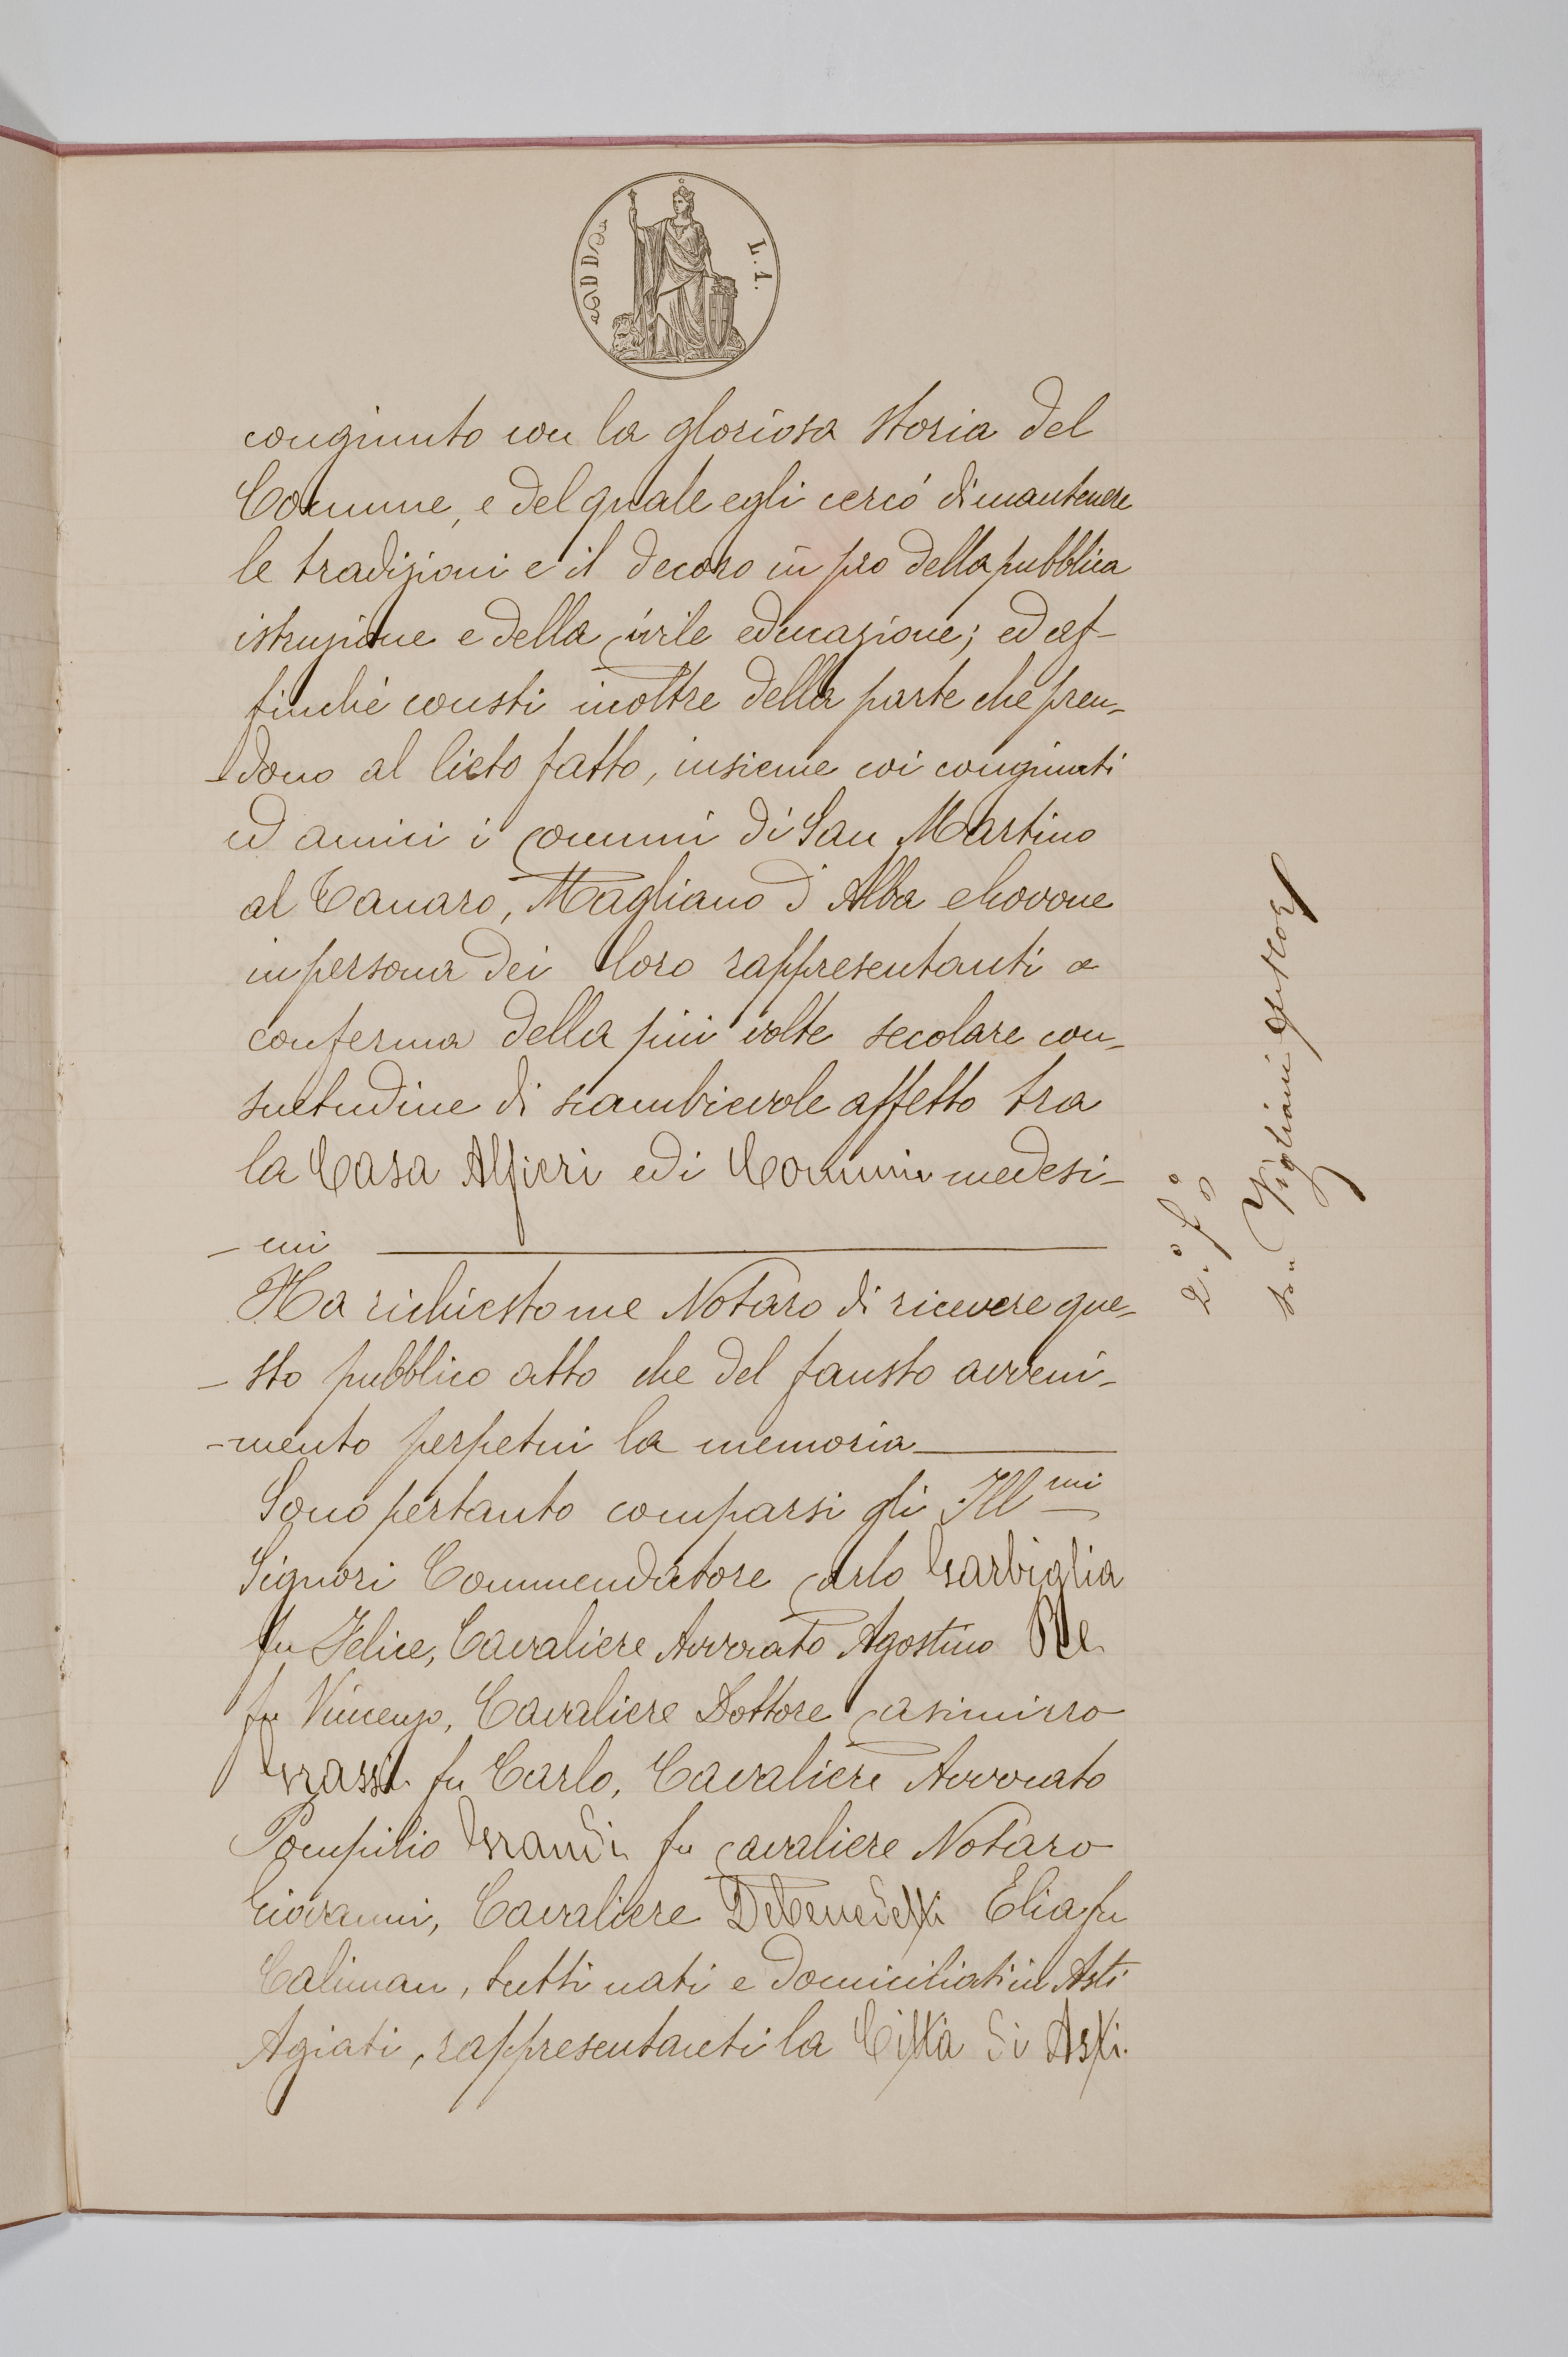 L. 1.
congiunto con la gloriosa storia del
Comune, e del quale egli cercò di mantenere
le tradizioni e il decoro in pro della pubblica
istruzione e della civile educazione; ed af-
finchè consti inoltre della parte che pren-
-dono al lieto fatto, insieme coi congiunti
ed amici i comuni di San Martino
al Tanaro, Magliano d'Alba e Govone
in persona dei loro rappresentanti a
conferma della più volte secolare con-
suetudine di scambievole affetto tra
la Casa Alfieri ed i Comuni medesi-
-mi
Ha richiesto me Notaro di ricevere que-
-sto pubblico atto che del fausto avveni-
-mento perpetui la memoria
Sono pertanto comparsi gli Ill.mi
Signori Commendatore Carlo Garbiglia
fu Felice, Cavaliere Avvocato Agostino Re
fu Vincenzo, Cavaliere Dottore Casimirro
Grassi fu Carlo, Cavaliere Avvocato
Pompilio Grandi fu Cavaliere Notaro
Giovanni, Cavaliere Debenedetti Elia fu
Caliman, tutti nati e domiciliati in Asti
Agiati, rappresentanti la Città di Asti.
2.° f.°
Vigliani